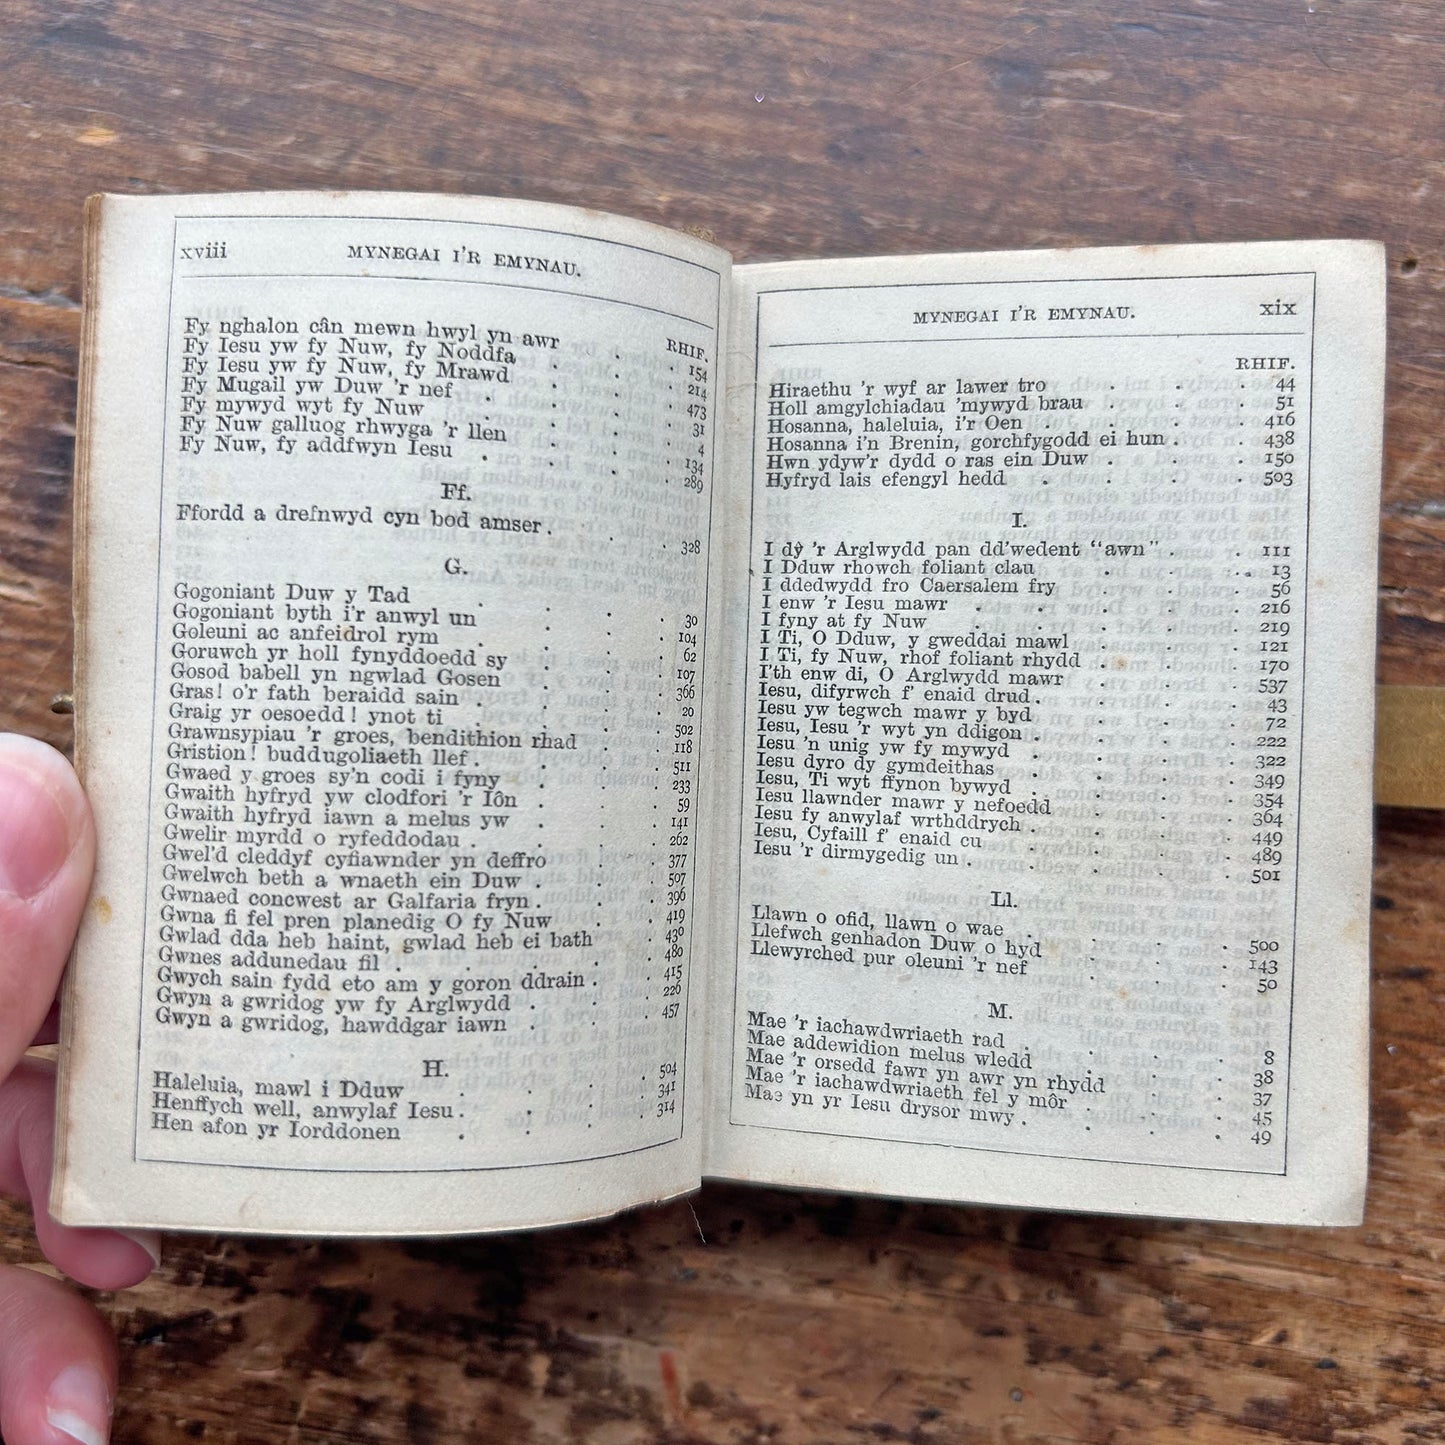 xviii MYNEGAI I'R EMYNAU.
RHIF.
Fy nghalon cân mewn hwyl yn awr . 154
Fy Iesu yw fy Nuw, fy Noddfa . . 214
Fy Iesu yw fy Nuw, fy Mrawd . . 473
Fy Mugail yw Duw 'r nef . . . 31
Fy mywyd wyt fy Nuw . . . 4
Fy Nuw galluog rhwyga 'r llen . . 134
Fy Nuw, fy addfwyn Iesu . . . 289
Ff.
Ffordd a drefnwyd cyn bod amser . . . 328
G.
Gogoniant Duw y Tad . . . . 30
Gogoniant byth i'r anwyl un . . . 104
Goleuni ac anfeidrol rym . . . . 62
Goruwch yr holl fynyddoedd sy . . . 107
Gosod babell yn ngwlad Gosen . . . 366
Gras! o'r fath beraidd sain . . . . 20
Graig yr oesoedd! ynot ti . . . 502
Grawnsypiau 'r groes, bendithion rhad . . 118
Gristion! buddugoliaeth llef . . . . 511
Gwaed y groes sy'n codi i fyny . . . 233
Gwaith hyfryd yw clodfori 'r Iôn . . . 59
Gwaith hyfryd iawn a melus yw . . . 141
Gwelir myrdd o ryfeddodau . . . . 262
Gwel'd cleddyf cyfiawnder yn deffro . . 377
Gwelwch beth a wnaeth ein Duw . . . 507
Gwnaed concwest ar Galfaria fryn . . . 396
Gwna fi fel pren planedig O fy Nuw . . 419
Gwlad dda heb haint, gwlad heb ei bath . 430
Gwnes addunedau fil . . . . 480
Gwych sain fydd eto am y goron ddrain . . 415
Gwyn a gwridog yw fy Arglwydd . . . 226
Gwyn a gwridog, hawddgar iawn . . . 457
H.
Haleluia, mawl i Dduw . . . . 504
Henffych well, anwylaf Iesu . . . . 341
Hen afon yr Iorddonen . . . 314
MYNEGAI I'R EMYNAU. xix
RHIF.
Hiraethu 'r wyf ar lawer tro . . . 44
Holl amgylchiadau 'mywyd brau . . . 51
Hosanna, haleluia, i'r Oen . . . . 416
Hosanna i'n Brenin, gorchfygodd ei hun . . . 438
Hwn ydyw'r dydd o ras ein Duw . . . 150
Hyfryd lais efengyl hedd . . . . 503
I.
I dŷ 'r Arglwydd pan dd'wedent "awn" . . . 111
I Dduw rhowch foliant clau . . . . 13
I ddedwydd fro Caersalem fry . . . 56
I enw 'r Iesu mawr . . . . 216
I fyny at fy Nuw . . . . 219
I Ti, O Dduw, y gweddai mawl . . . 121
I Ti, fy Nuw, rhof foliant rhydd . . . 170
I'th enw di, O Arglwydd mawr . . . 537
Iesu, difyrwch f' enaid drud . . . . 43
Iesu yw tegwch mawr y byd . . . 72
Iesu, Iesu 'r wyt yn ddigon . . . . 222
Iesu 'n unig yw fy mywyd . . . . 322
Iesu dyro dy gymdeithas . . . . 349
Iesu, Ti wyt ffynon bywyd . . . . 354
Iesu llawnder mawr y nefoedd . . . 364
Iesu fy anwylaf wrthddrych . . . . 449
Iesu, Cyfaill f' enaid cu . . . . 489
Iesu 'r dirmygedig un . . . . 501
Ll.
Llawn o ofid, llawn o wae . . . . 500
Llefwch genhadon Duw o hyd . . . 143
Llewyrched pur oleuni 'r nef . . . 50
M.
Mae 'r iachawdwriaeth rad . . . . 8
Mae addewidion melus wledd . . . 38
Mae 'r orsedd fawr yn awr yn rhydd . . . 37
Mae 'r iachawdwriaeth fel y môr . . . 45
Mae yn yr Iesu drysor mwy . . . . 49